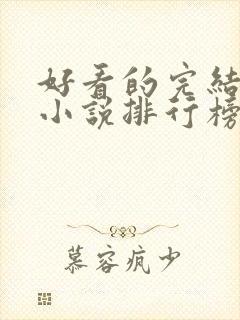 好看的完結
小說排行榜
慕容疯少